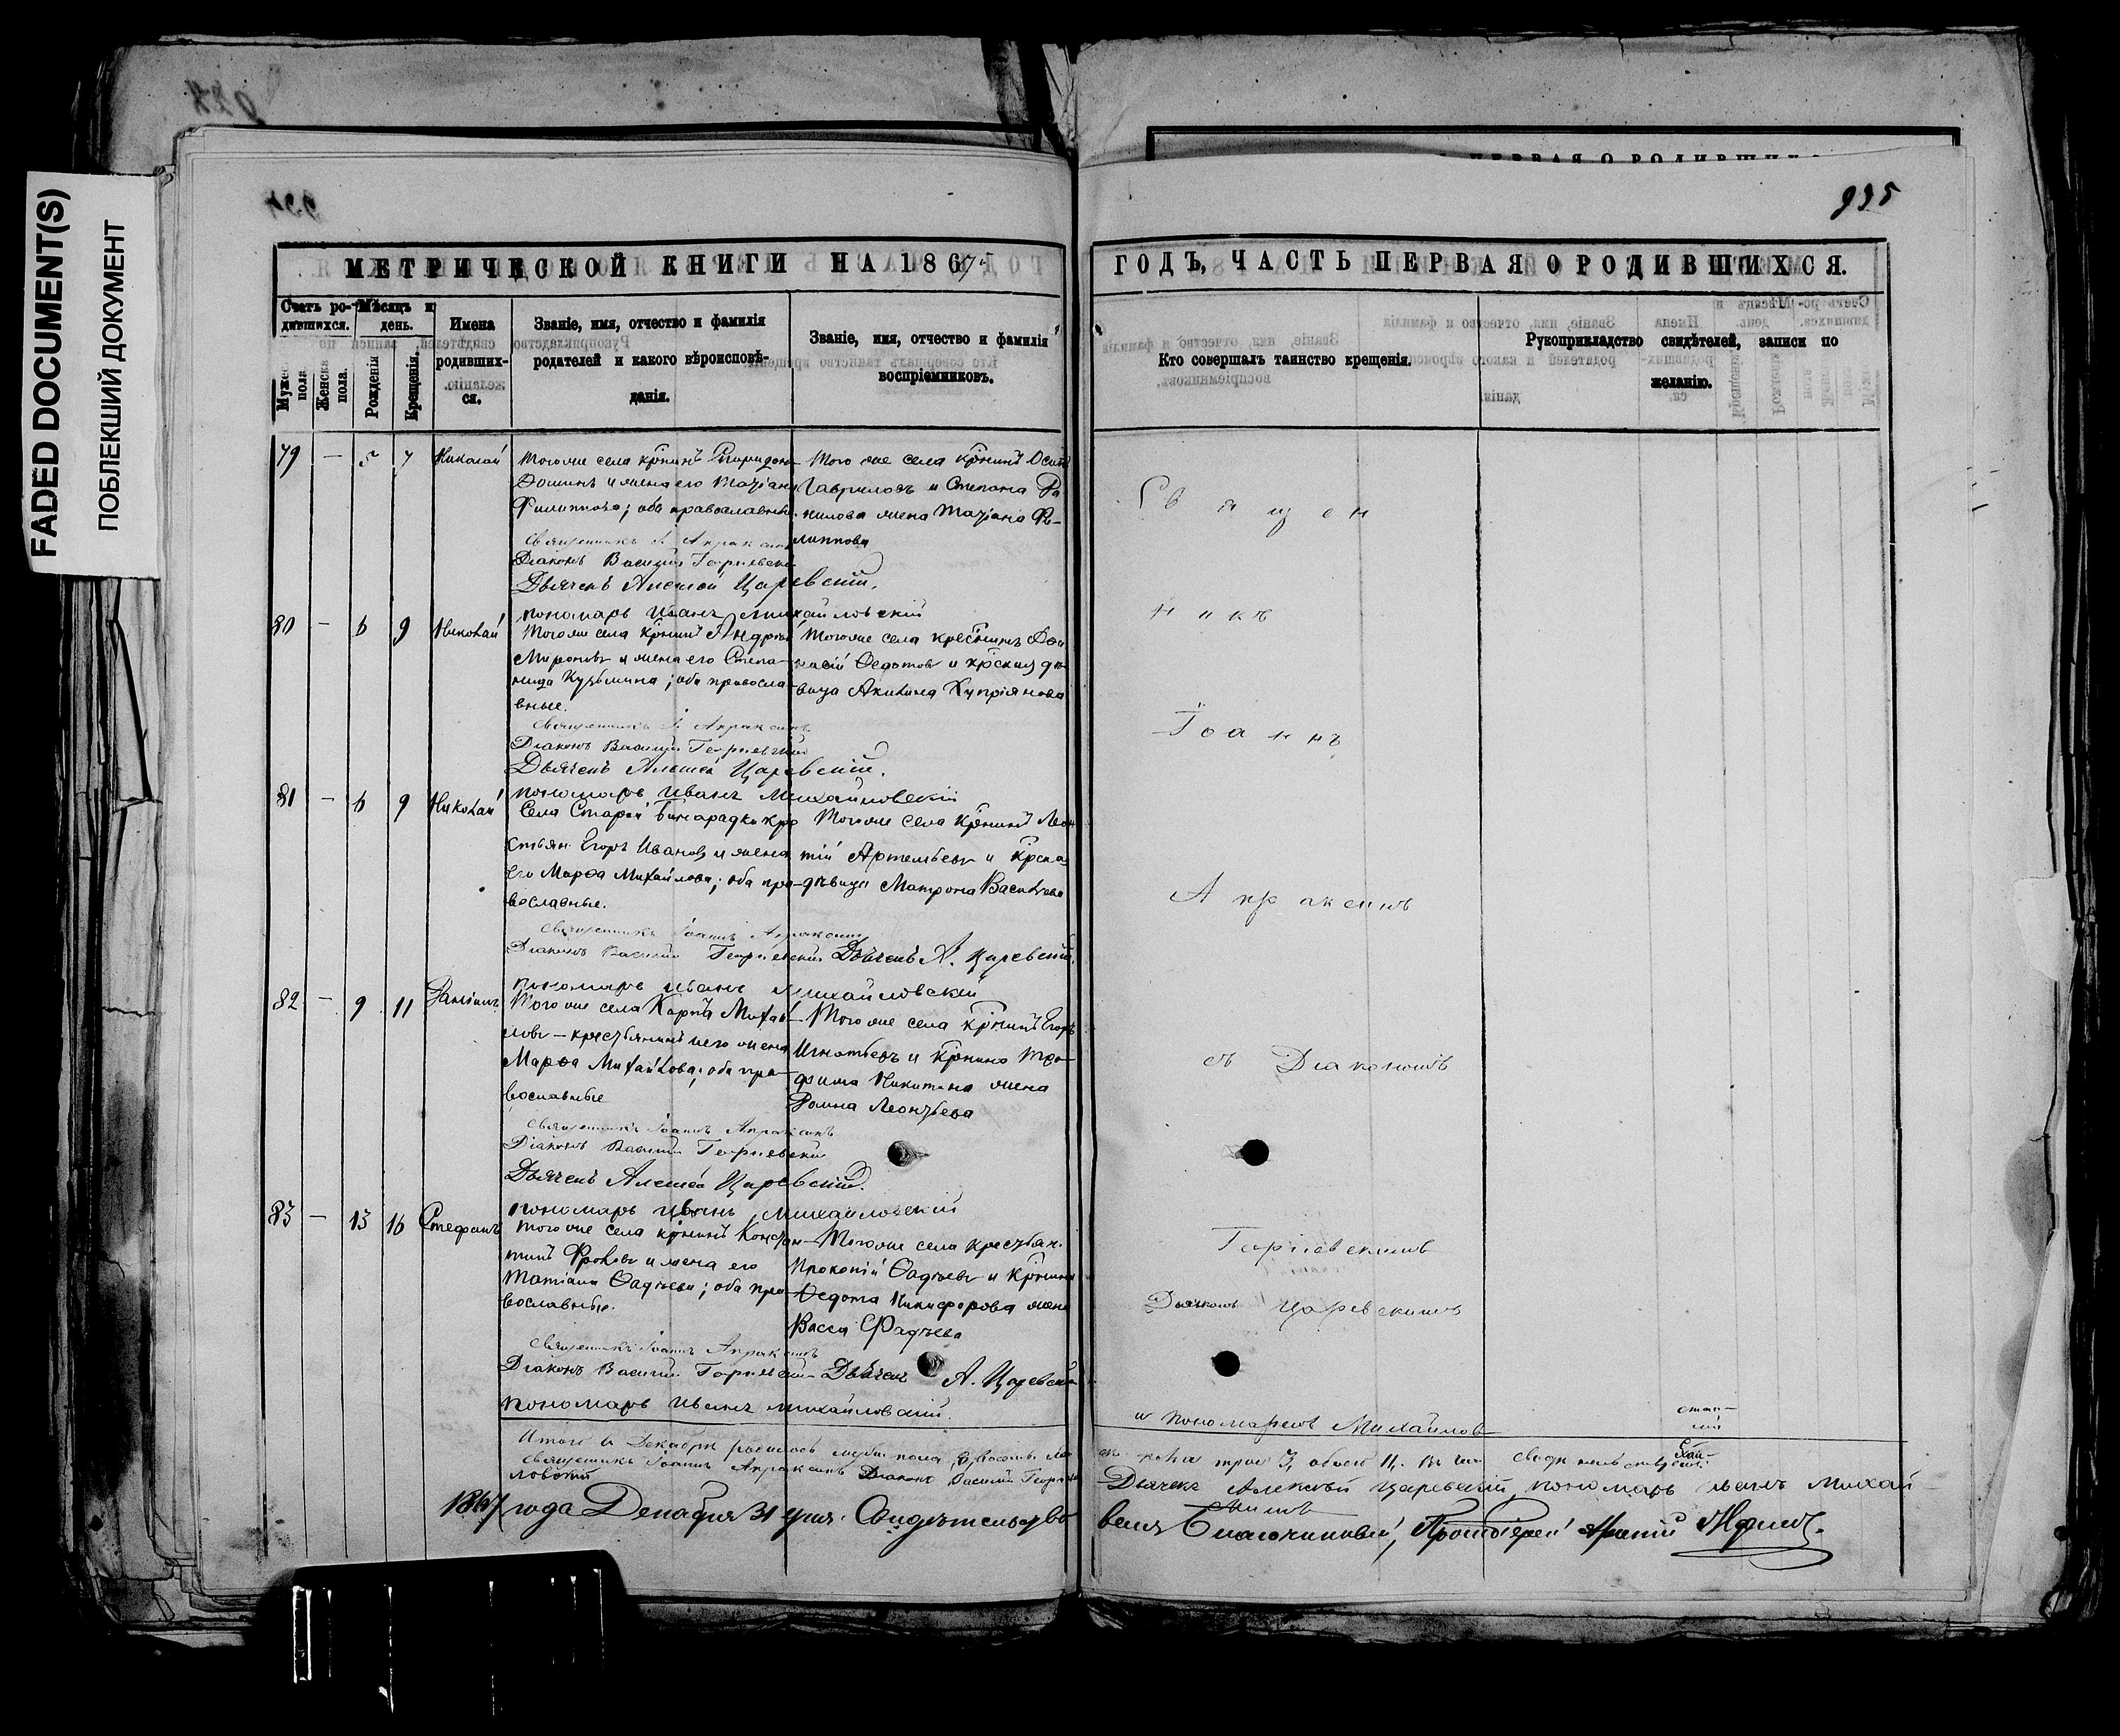 FADED DOCUMENT(S)
ПОБЛЕКШИЙ ДОКУМЕНТ
935
МЕТРИЧЕСКОЙ КНИГИ НА 1867
ГОДЪ, ЧАСТЬ ПЕРВАЯ О РОДИВШИХСЯ.
Счетъ ро-
дившихся.
Мужес
пола.
Женска
пола.
Мѣсяцъ и
день.
Рожденія
Крещенія.
Имена
родивших-
ся.
Званіе, имя, отчество и фамилія
родителей и какого вѣроисповѣ-
данія.
Званіе, имя, отчество и фамилія
воспріемниковъ.
Кто совершалъ таинство крещенія.
Рукоприкладство свидѣтелей, записи по
желанію.
79 — 5 7 Николай
Тогоже села крнинъ Спиридонъ
Фоминъ и жена его Татіана
Филиппова; оба православные.
Того же села крнинъ Осипъ
Гавриловъ и Степана
нилова жена Татіана Фи-
липпова
Священникъ І. Апраксинъ
Діаконъ Василій Георгіевскій
Дьячекъ Алексѣй Царевскій.
пономарь Иванъ Михайловскій
80 — 6 9 Николай
Тогоже села крнинъ Андрей
Мироновъ и жена его Степа-
нида Кузьмина; оба правосла-
вные.
Тогоже села крестнинъ
Ѳедотовъ и крская дѣ-
вица Акилина Купріянова
Священникъ І. Апраксинъ
Діаконъ Василій Георгіевскій
Дьячекъ Алексѣй Царевскій.
пономарь Иванъ Михайловскій
81 — 6 9 Николай
Села Старой Бинарадки кре
стьян. Егоръ Ивановъ и жена
его Марѳа Михайлова; оба пра-
вославные.
Тогоже села крнинъ Леон
тій Артемьевъ и крска
дѣвица Матрона Васильева
Священникъ Іоаннъ Апраксинъ
Діаконъ Василій Георгіевскій Дьячекъ А. Царевскій.
пономарь Иванъ Михайловскій
82 — 9 11 Даніилъ
Того же села Карпъ Михай-
ловъ — крестьянинъ и его жена
Марѳа Михайлова; оба пра-
вославные
Того же села крнинъ Егоръ
Игнатьевъ и крнина Тро-
фима Никитина жена
Домна Леонтьева
Священникъ Іоаннъ Апраксинъ
Діаконъ Василій Георгіевскій
Дьячекъ Алексѣй Царевскій.
пономарь Иванъ Михайловскій
83 — 13 16 Стефанъ
Того же села крнинъ Констан-
тинъ Фроловъ и жена его
Татіана Ѳадѣева; оба пра-
вославные.
Тогоже села крестьян.
Прокопій Ѳадѣевъ и крнина
Ѳедота Никифорова жена
Васса Фадѣева
Священникъ Іоаннъ Апраксинъ
Діаконъ Василій Георгіевскій Дьячекъ А. Царевскій
пономарь Иванъ Михайловскій.
Священ
никъ
Іоаннъ
Апраксинъ
съ Діакономъ
Георгіевскимъ
Дьячкомъ Царевскимъ
и пономаремъ Михайлов-
Итого въ Декабрѣ родилось мужеска пола
Священникъ Іоаннъ Апраксинъ Діаконъ Василій Георгіе
Дьячекъ Алексѣй Царевскій, пономарь Иванъ Михай-
ловскій
1867 года Декабря 31 дня. Свидѣтельство
валъ Благочинный, Протоіерей